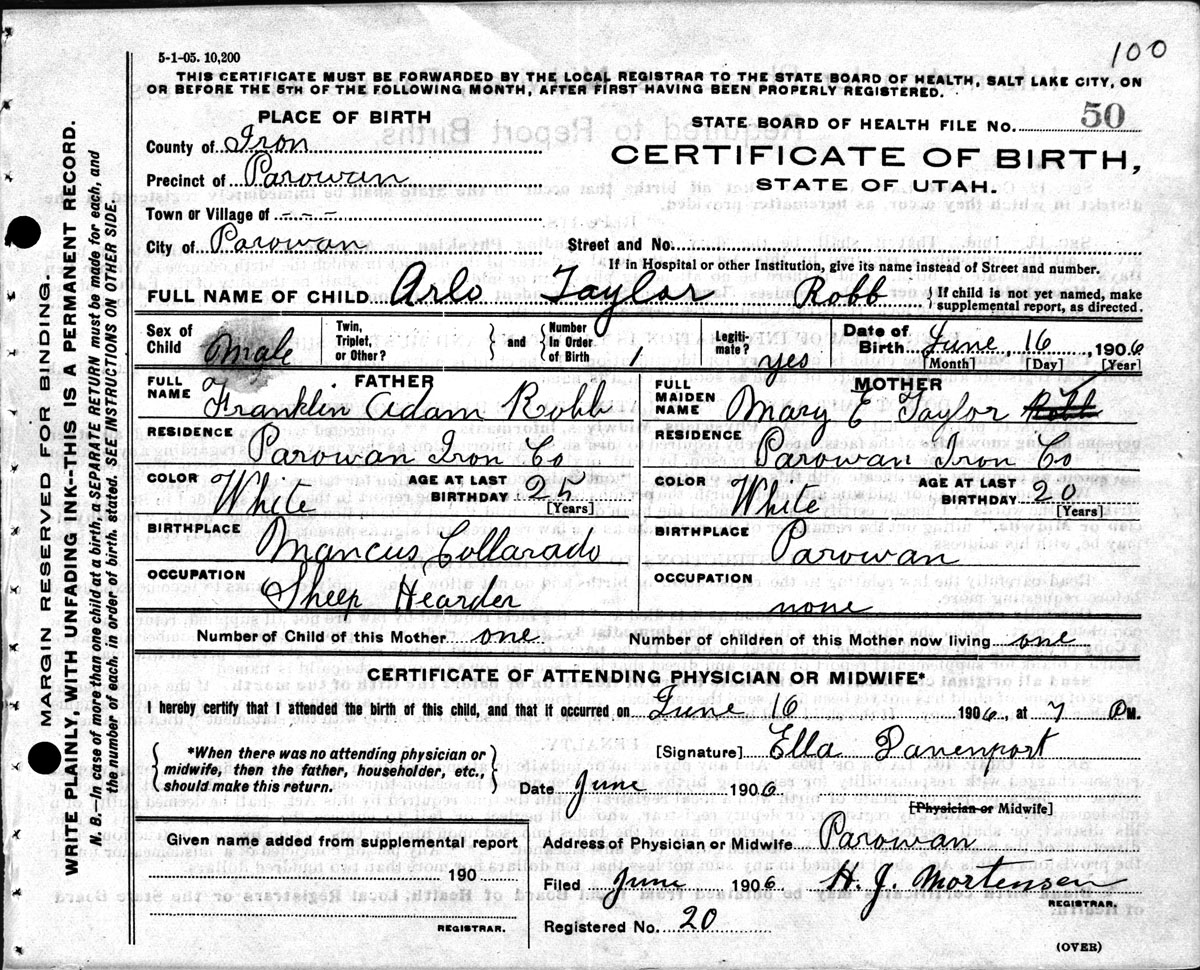 100
5-1-05. 10,200
THIS CERTIFICATE MUST BE FORWARDED BY THE LOCAL REGISTRAR TO THE STATE BOARD OF HEALTH, SALT LAKE CITY, ON
OR BEFORE THE 5TH OF THE FOLLOWING MONTH, AFTER FIRST HAVING BEEN PROPERLY REGISTERED.
MARGIN RESERVED FOR BINDING.
WRITE PLAINLY, WITH UNFADING INK--THIS IS A PERMANENT RECORD.
N. B.--In case of more than one child at a birth, a SEPARATE RETURN must be made for each, and
the number of each, in order of birth, stated. SEE INSTRUCTIONS ON OTHER SIDE.
PLACE OF BIRTH
County of Iron
Precinct of Parowan
Town or Village of - - -
City of Parowan
STATE BOARD OF HEALTH FILE NO. 50
CERTIFICATE OF BIRTH,
STATE OF UTAH.
Street and No.
If in Hospital or other Institution, give its name instead of Street and number.
FULL NAME OF CHILD Arlo Taylor Robb { If child is not yet named, make
supplemental report, as directed.
Sex of Child Male
Twin, Triplet, or Other? } and { Number In Order of Birth 1
Legitimate? yes
Date of Birth June 16, 1906
[Month] [Day] [Year]
FATHER
FULL NAME Franklin Adam Robb
RESIDENCE Parowan Iron Co
COLOR White AGE AT LAST BIRTHDAY 25
[Years]
BIRTHPLACE Mancus Collarado
OCCUPATION Sheep Hearder
MOTHER
FULL MAIDEN NAME Mary E Taylor Robb
RESIDENCE Parowan Iron Co
COLOR White AGE AT LAST BIRTHDAY 20
[Years]
BIRTHPLACE Parowan
OCCUPATION none
Number of Child of this Mother one. Number of children of this Mother now living one
CERTIFICATE OF ATTENDING PHYSICIAN OR MIDWIFE*
I hereby certify that I attended the birth of this child, and that it occurred on June 16 1906, at 7 P M.
{ *When there was no attending physician or
midwife, then the father, householder, etc.,
should make this return. }
[Signature] Ella Davenport
Date June 1906
[Physician or Midwife]
Given name added from supplemental report
190
REGISTRAR.
Address of Physician or Midwife Parowan
Filed June 1906 H. J. Mortensen
REGISTRAR.
Registered No. 20
(OVER)